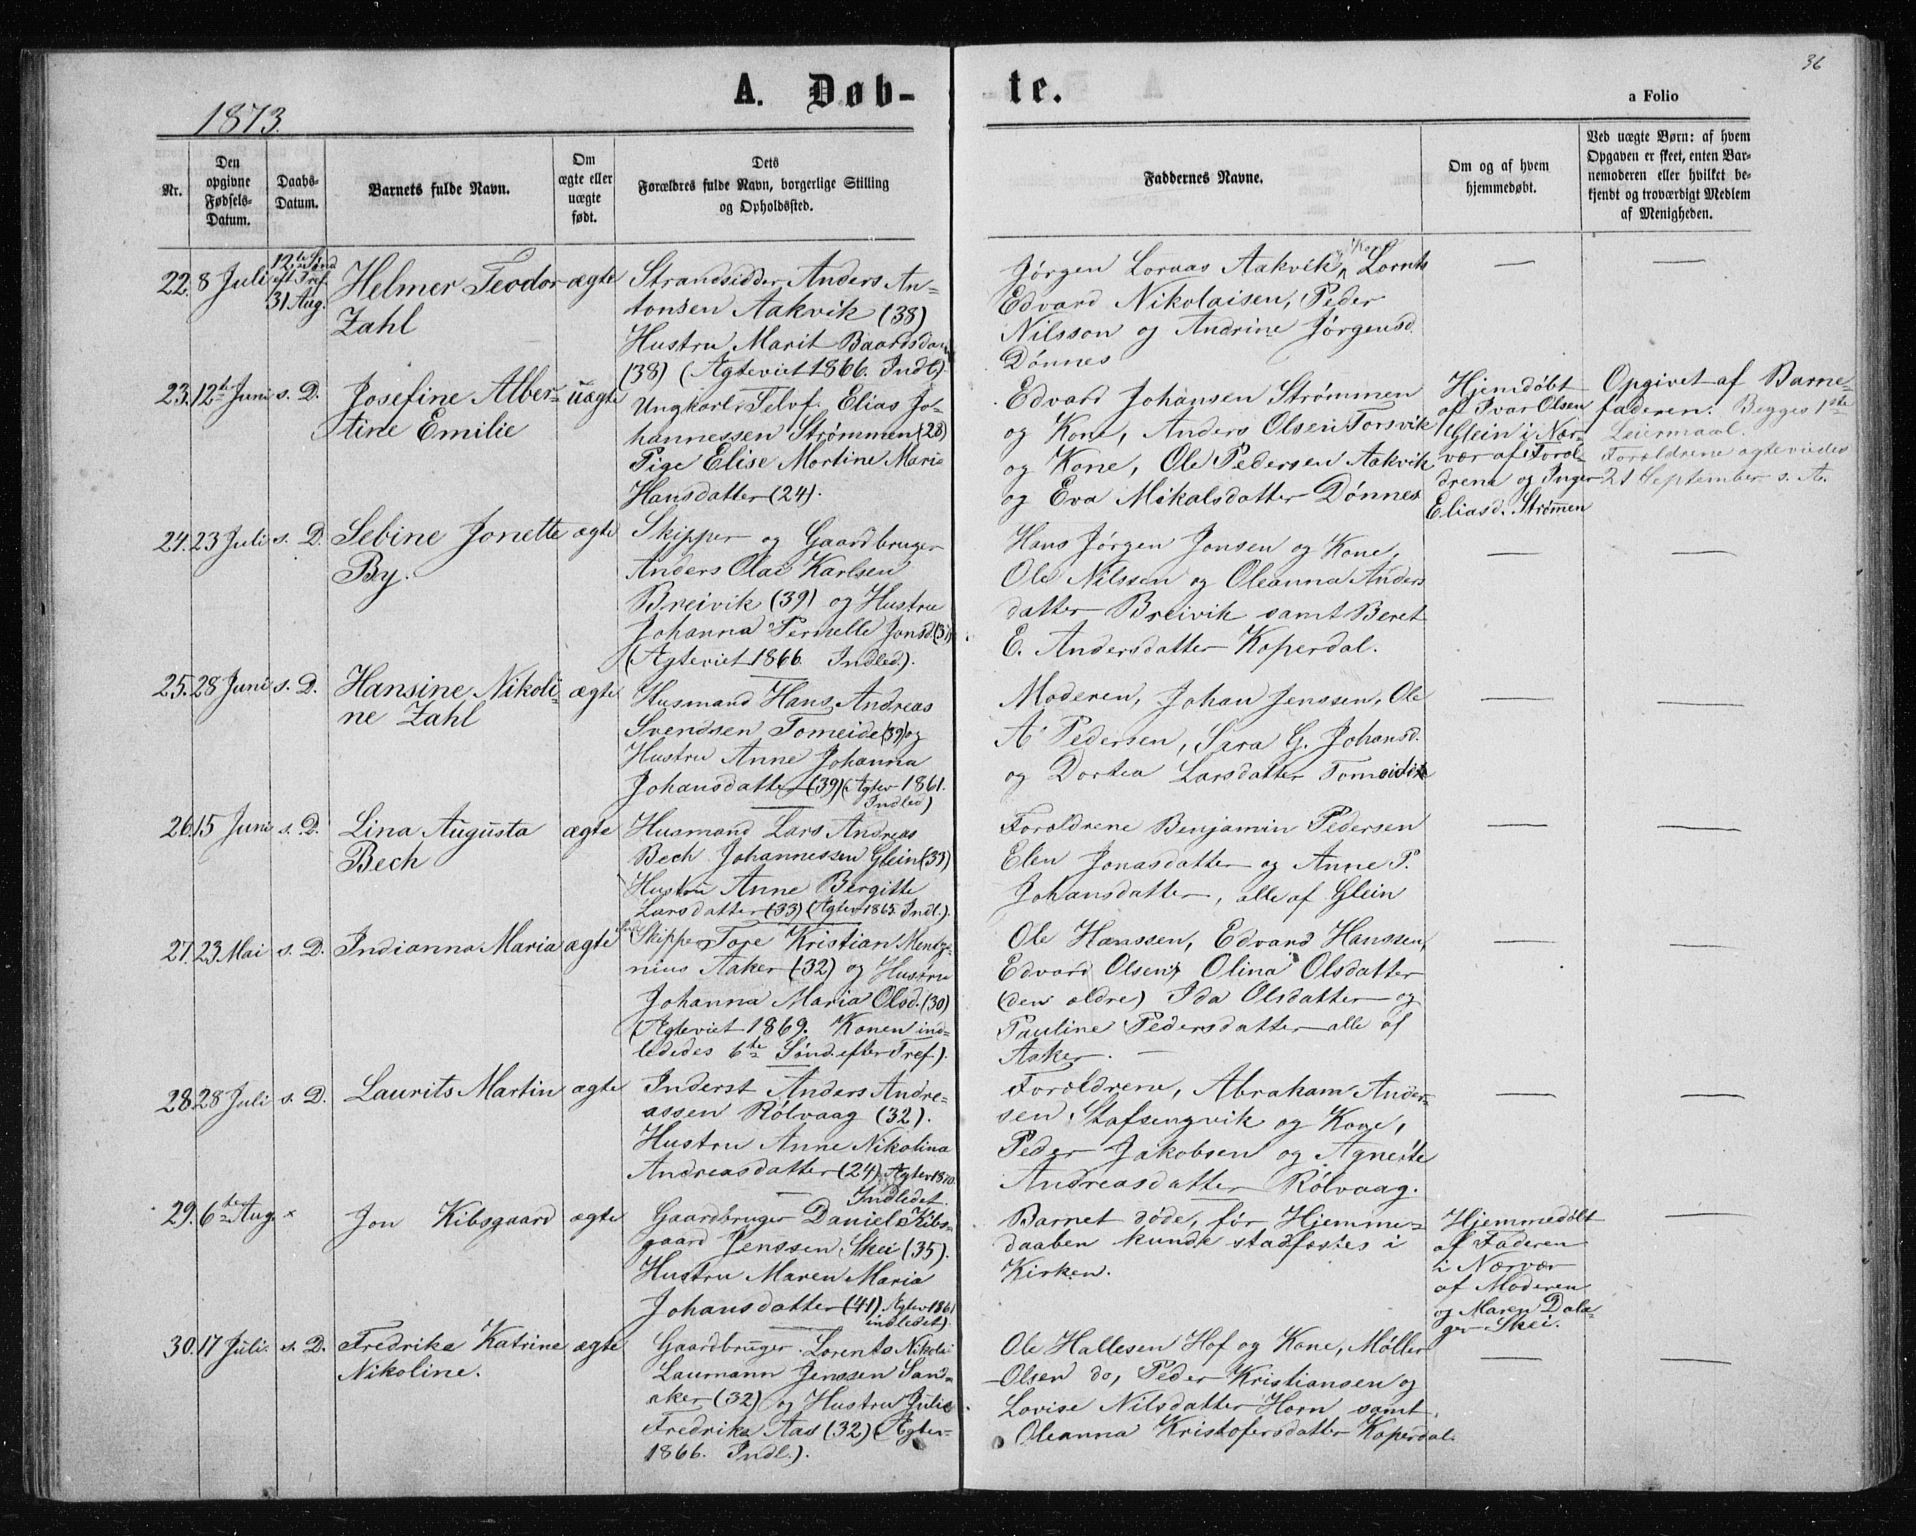 36
A. Døb-
te.
a Folio
1873.
Nr.
Den
opgivne
Fødsels-
Datum.
Daabs-
Datum.
Barnets fulde Navn.
Om
ægte eller
uægte
født.
Dets
Forældres fulde Navn, borgerlige Stilling
og Opholdssted.
Faddernes Navne.
Om og af hvem
hjemmedøbt.
Ved uægte Børn: af hvem
Opgaven er skeet, enten Bar-
nemoderen eller hvilket be-
kjendt og troværdigt Medlem
af Menigheden.
22. 8 Juli
12te Sønd
eft Tref.
31 Aug.
Helmer Teodor
Zahl
ægte
Strandsidder Anders An-
tonsen Aakvik (38)
Hustru Marit Baardsda
(38) (Ægteviet 1866. Indl.)
Jørgen Loraas Aakvik, Lornts
Edvard Nikolaisen, Peder
Nilsson og Andrine Jørgensd.
Dønnes
—
—
23. 12te Juni s. D.
Josefine Alber-
tine Emilie
uægte
Ungkarl Selvf. Elias Jo-
hannessen Strømmen (28)
Pige Elise Mortine Marie
Hansdatter (24).
Edvard Johansen Strømmen
og Kone, Anders Olsen Forsvik
og Kone, Ole Pedersen Aakvik
og Eva Mikalsdatter Dønnes
Hjemdøbt
af Ivar Olsen
Glein i Nær-
vær af Foræl-
drene og Inger
Eliasd. Strømmen
Opgivet af Barne-
faderen. Begges 1ste
Leiermaal.
Forældrene ægteviedes
21 September s. A.
24. 23 Juli s. D.
Sebine Jonette
By.
ægte
Skipper og Gaardbruger
Anders Olai Karlsen
Breivik (39) og Hustru
Johanna Pernelle Jonsd.
(Ægteviet 1866. Indled.).
Hans Jørgen Jonsen og Kone,
Ole Nilssen og Oleanna Anders
datter Breivik samt Beret
E. Andersdatter Koperdal.
—
—
25. 28 Juni s. D.
Hansine Nikoli-
ne Zahl
ægte
Husmand Hans Andreas
Svendsen Tomeide (39) og
Hustru Anne Johanna
Johansdatter (39) (Ægtev 1861.
Indled)
Moderen, Johan Jenssen, Ole
A Pedersen, Sara G. Johansd.
og Dortea Larsdatter Tomeide
—
—
26. 15 Juni s. D.
Lina Augusta
Bech
ægte
Husmand Lars Andreas
Bech Johannessen Glein (33)
Hustru Anne Bergitte
Larsdatter (33) (Ægtev 1865. Indl.).
Forældrene Benjamin Pedersen
Elen Jonasdatter og Anne P.
Johansdatter, alle af Glein
—
—
27. 23 Mai s. D.
Indianna Maria
ægte
Skipper Tore Kristian Mentze-
nius Aaker (32) og Hustru
Johanna Maria Olsd. (30)
(Ægteviet 1869. Konen ind-
lededes 6te Sønd. efter Tref.).
Ole Hanssen, Edvard Hanssen,
Edvard Olsen, Olina Olsdatter
(den ældre) Ida Olsdatter og
Pauline Pedersdatter alle af
Aaker.
—
—
28. 28 Juli s. D.
Laurits Martin
ægte
Inderst Anders Andre-
assen Rølvaag (32).
Hustru Anne Nikolina
Andreasdatter (24) Ægtev 1870.
Indledet.
Forældrene, Abraham Ander-
sen Stafsengvik og Kone,
Peder Jakobsen og Agnete
Andreasdatter Rølvaag.
—
—
29. 6te Aug. ×
Jon Kibsgaard
ægte
Gaardbruger Daniel Kibs-
gaard Jenssen Skei (35).
Hustru Maren Maria
Johansdatter (41). Ægtev 1861
indledet).
Barnet døde, før Hjemme-
daaben kunde stadfæstes i
Kirken.
Hjemmedøbt
af Faderen
i Nærvær
af Moderen
og Maren Dala-
ger Skei.
—
30. 17 Juli. s. D.
Fredrika Katrine
Nikoline.
ægte
Gaardbruger Lorents Nikolai
Laumann Jenssen San-
aker (32) og Hustru Julie
Fredrika Aas (32) (Ægtev
1866. Indl.).
Ole Hallesen Hof og Kone, Møller
Olsen do, Peder Kristiansen og
Lovise Nilsdatter Horn samt
Oleanna Kristofersdatter Koperdal.
—
—